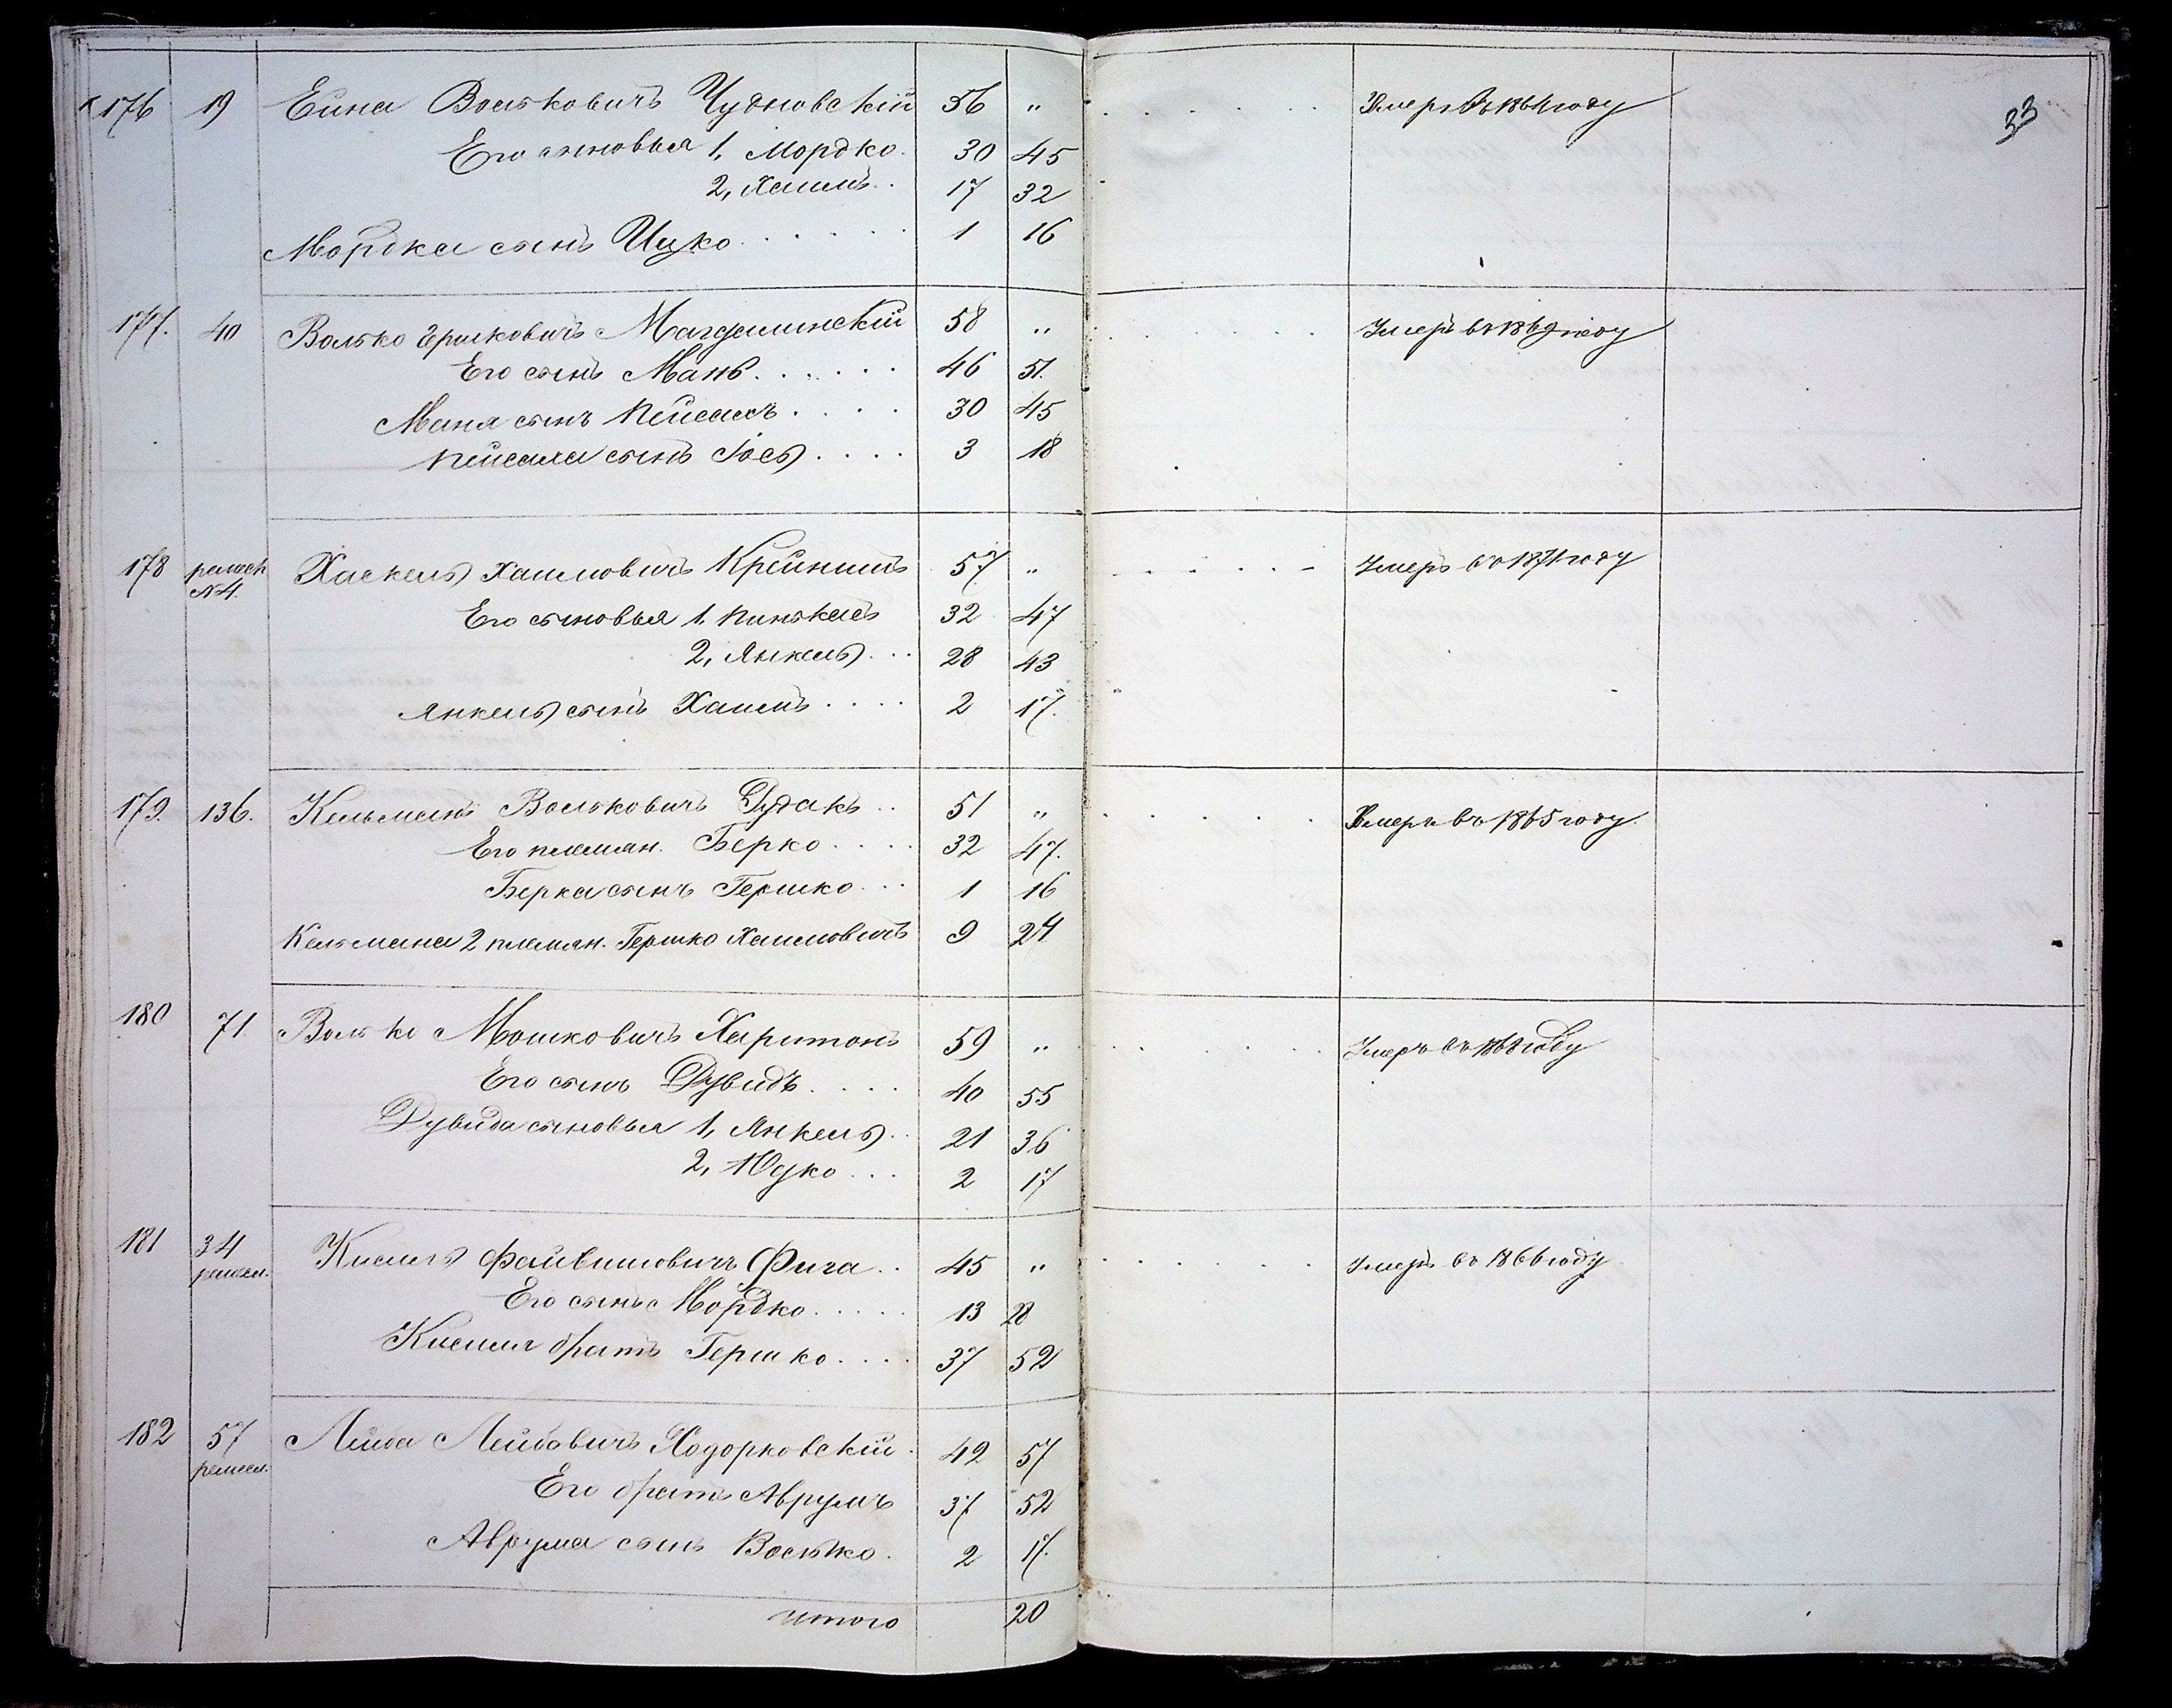 33
176 19 Ейна Вольковичъ Чудновскій 56 " Умеръ въ 1864 году
Его сыновья 1, Мордко 30 45
2, Хаимъ 17 32
Мордка сынъ Ицко 1 16
177. 40 Волько Ершковичъ 58 " Умеръ въ 1869 году
Его сынъ Мань 46 51.
Маня сынъ Пейсахъ 30 45
Пейсаха сынъ Іось 3 18
178 № 4. Хаскель Хаимовичъ 57 " Умеръ въ 1871 году
Его сыновья 1, Пинькасъ 32 47
2, Янкель 28 43
Янкель сынъ Хаимъ 2 17.
179. 136. Кельманъ Вольковичъ Дудакъ 51 " Умеръ въ 1865 году
Его племян. Берко 32 47.
Берка сынъ Гершко 1 16
Кельмана 2 племян. Гершко Хаимовичъ 9 24
180 71. Волько Мошковичъ Харитонъ 59 " Умеръ въ 1868 году
Его сынъ Дувидъ 40 55
Дувида сыновья 1, Янкель 21 36
2, Юдко 2 17
181 34 ремесл. Кисиль Файвишовичъ Фига 45 " Умеръ въ 1866 году
Его сынъ Мордко 13 28
Кисиля братъ Гершко 37 52
182 57 ремесл. Лейба Лейбовичъ Ходорковскій 42 57
Его братъ Аврумъ 37 52
Аврума сынъ Волько 2 17.
итого 20